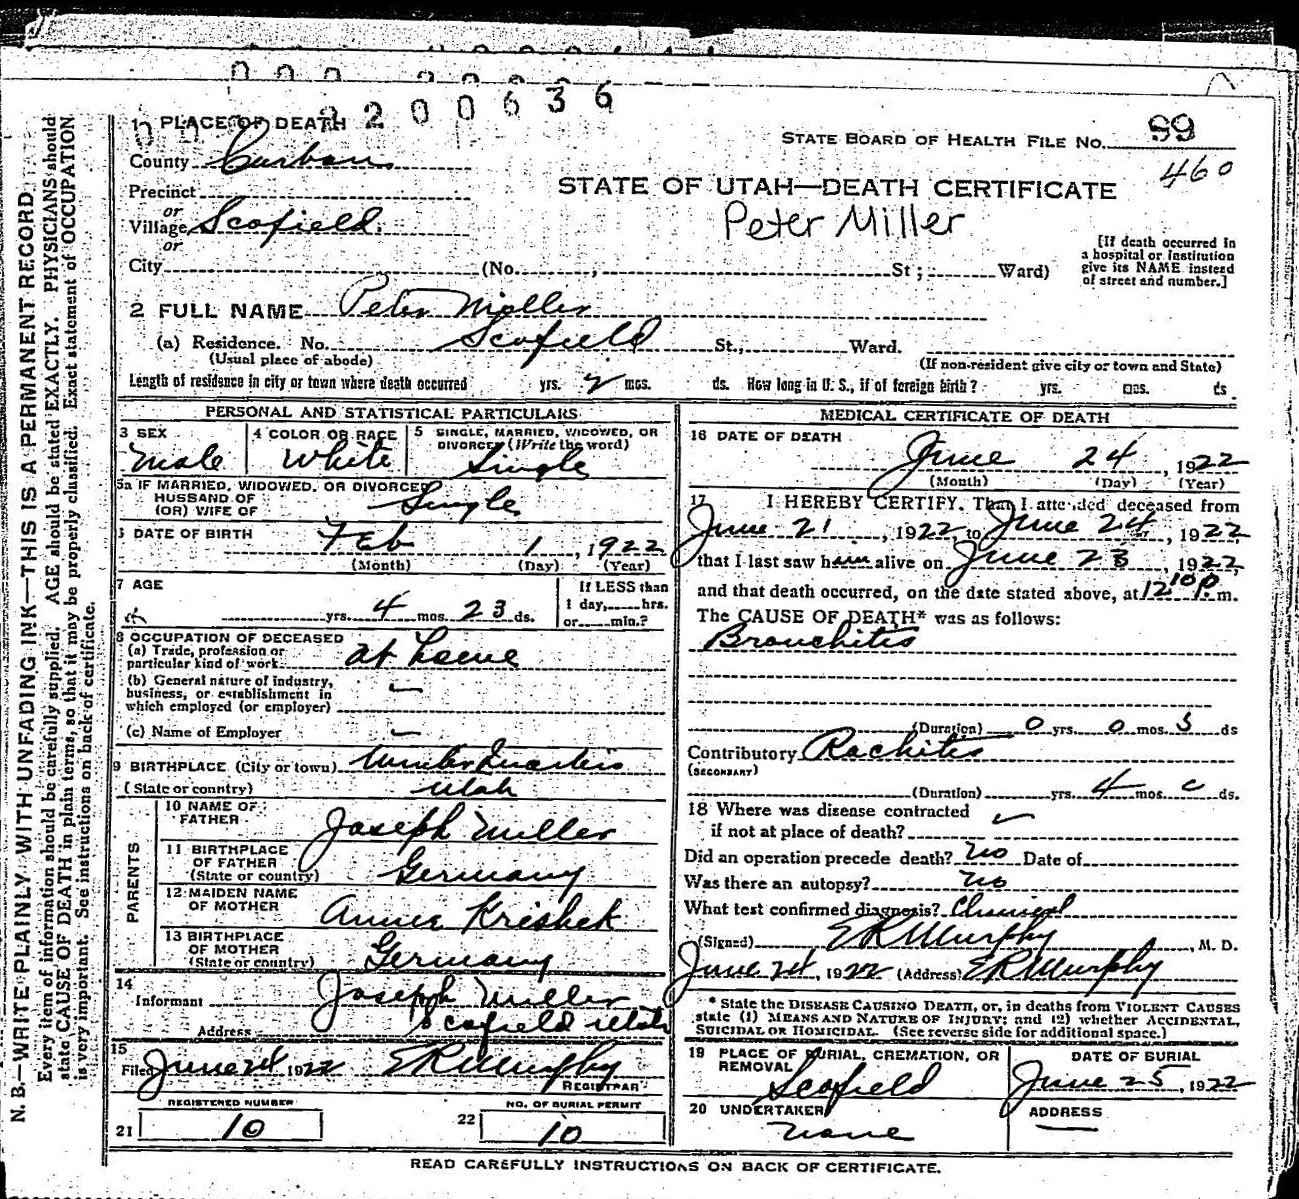 2200636
1 PLACE OF DEATH
STATE BOARD OF HEALTH FILE No. 99
County Carbon
460
Precinct
STATE OF UTAH—DEATH CERTIFICATE
or
Village Scofield
Peter Miller
or
[If death occurred in a hospital or institution give its NAME instead of street and number.]
City (No. , St ; Ward)
2 FULL NAME Peter Miller
(a) Residence. No. Scofield St., Ward.
(Usual place of abode) (If non-resident give city or town and State)
Length of residence in city or town where death occurred yrs. mos. ds. How long in U. S., if of foreign birth? yrs. mos. ds.
PERSONAL AND STATISTICAL PARTICULARS
3 SEX Male
4 COLOR OR RACE White
5 SINGLE, MARRIED, WIDOWED, OR DIVORCED (Write the word) Single
5a IF MARRIED, WIDOWED, OR DIVORCED
HUSBAND OF
(OR) WIFE OF Single
6 DATE OF BIRTH Feb 1, 1922
(Month) (Day) (Year)
7 AGE yrs. 4 mos. 23 ds.
If LESS than
1 day, hrs.
or min.?
8 OCCUPATION OF DECEASED
(a) Trade, profession or
particular kind of work at home
(b) General nature of industry,
business, or establishment in
which employed (or employer) —
(c) Name of Employer —
9 BIRTHPLACE (City or town) Winter Quarters
(State or country) Utah
PARENTS
10 NAME OF FATHER Joseph Miller
11 BIRTHPLACE OF FATHER (State or country) Germany
12 MAIDEN NAME OF MOTHER Annie
13 BIRTHPLACE OF MOTHER (State or country) Germany
14 Informant Joseph Miller
Address Scofield Utah
15 Filed June 24 1922 ER Murphy
REGISTRAR
REGISTERED NUMBER
21 10
NO. OF BURIAL PERMIT
22 10
MEDICAL CERTIFICATE OF DEATH
16 DATE OF DEATH
June 24, 1922
(Month) (Day) (Year)
17 I HEREBY CERTIFY, That I attended deceased from
June 21, 1922, to June 24, 1922
that I last saw him alive on June 23, 1922,
and that death occurred, on the date stated above, at 12 10 P. m.
The CAUSE OF DEATH* was as follows:
Bronchitis
(Duration) 0 yrs. 0 mos. 3 ds
Contributory Rachitis
(SECONDARY)
(Duration) yrs. 4 mos. 0 ds.
18 Where was disease contracted
if not at place of death?
Did an operation precede death? No Date of
Was there an autopsy? No
What test confirmed diagnosis? Clinical
(Signed) ER Murphy, M. D.
June 24, 1922 (Address) ER Murphy
* State the DISEASE CAUSING DEATH, or, in deaths from VIOLENT CAUSES
state (1) MEANS AND NATURE OF INJURY; and (2) whether ACCIDENTAL,
SUICIDAL or HOMICIDAL. (See reverse side for additional space.)
19 PLACE OF BURIAL, CREMATION, OR REMOVAL Scofield
DATE OF BURIAL
June 25, 1922
20 UNDERTAKER
none
ADDRESS
—
READ CAREFULLY INSTRUCTIONS ON BACK OF CERTIFICATE.
N. B.—WRITE PLAINLY WITH UNFADING INK—THIS IS A PERMANENT RECORD
Every item of information should be carefully supplied. AGE should be stated EXACTLY. PHYSICIANS should
state CAUSE OF DEATH in plain terms, so that it may be properly classified. Exact statement of OCCUPATION
is very important. See instructions on back of certificate.